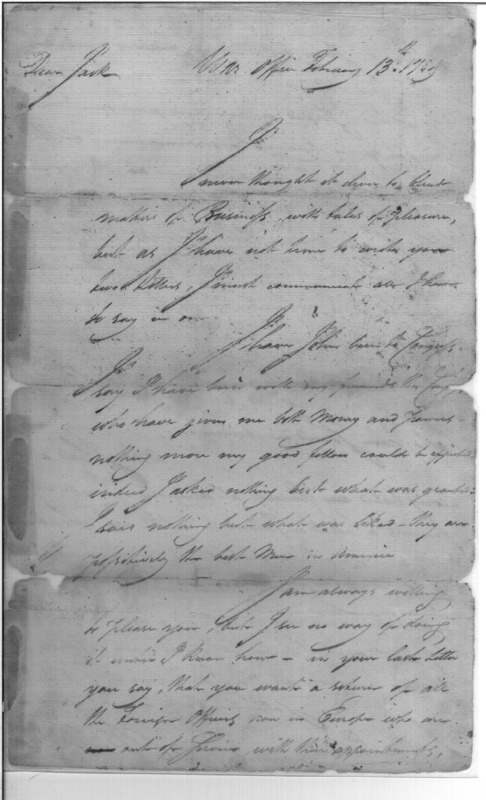 Dear Jack War Office February 13th 1789
I never thought it clever to blend
matters of Business, with tales of pleasure,
but as I have not time to write you
two letters, I must communicate all I have
to say in one
I have John been to Congress.
I say I have been with my friends the
who have given me both Money and Powers —
nothing more my good fellow could be expected
indeed I asked nothing but what was granted
I said nothing but what was liked — they are
positively the best Men in America
I am always willing
to please you, but I see no way of doing
it unless I knew how — in your last letter
you say, that you want a return of all
the Foreign Officers now in Europe who are
out of Service, with their appointments,